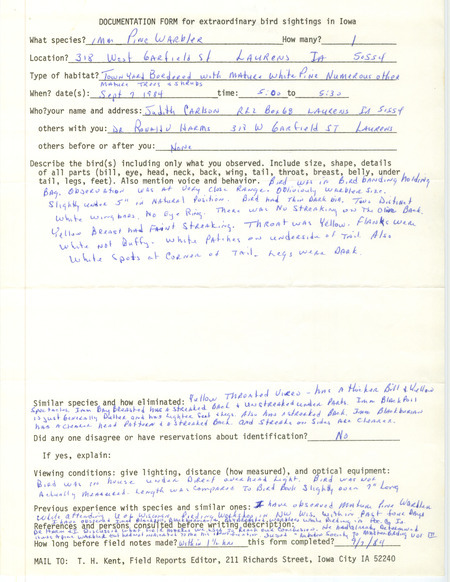 DOCUMENTATION FORM for extraordinary bird sightings in Iowa
What species? Imm Pine Warbler How many? 1
Location? 318 West Garfield St Laurens IA 50554
Type of habitat? Town yard Bordered with Mature White Pine Numerous other
Mature Trees & shrubs
When? date(s): Sept 7 1984 time: 5:00 to 5:30
Who? your name and address: Judith Carlson RR2 Box 68 Laurens IA 50554
others with you: Dr Ronald Harms 318 W Garfield ST Laurens
others before or after you: None
Describe the bird(s) including only what you observed. Include size, shape, details
of all parts (bill, eye, head, neck, back, wing, tail, throat, breast, belly, under
tail, legs, feet). Also mention voice and behavior. Bird was in Bird banding holding
Bag. Observation was at Very close Range. Obviously Warbler size.
Slightly under 5" in Natural Position. Bird had Thin Dark Bill. Two Distinct
White wingbars. No Eye Ring. There was No Streaking on The Olive Back.
Yellow Breast had Faint Streaking. Throat was Yellow. Flanks were
White not Buffy. White Patches on underside of Tail Also
White Spots at Corner of Tail. Legs were Dark.
Similar species and how eliminated: Yellow Throated Vireo - has a thicker Bill & Yellow
Spectacles. Imm Bay Breasted has a streaked Back & unstreaked under Parts. Imm Blackpoll
is just Generally Duller and has lighter feet & legs. Also has a streaked Back. Imm Blackburnian
has a clearer head Pattern & a Streaked Back and Streaks on Sides are clearer.
Did any one disagree or have reservations about identification? No
If yes, explain:
Viewing conditions: give lighting, distance (how measured), and optical equipment:
Bird was in house under Direct overhead light. Bird was not
Actually measured. Length was compared To Bird Book Slightly over 7" long
Previous experience with species and similar ones: I have observed Mature Pine Warbler
while attending U of Wisconsin Birding Workshop in NW Wis. within Past four Days
I have observed Imm Blackpoll, Blackburnian, Baybreasted warblers while Birding in
References and persons consulted before writing description:
How long before field notes made? within 1½ hrs this form completed? 9/7/84
MAIL TO: T. H. Kent, Field Reports Editor, 211 Richards Street, Iowa City IA 52240